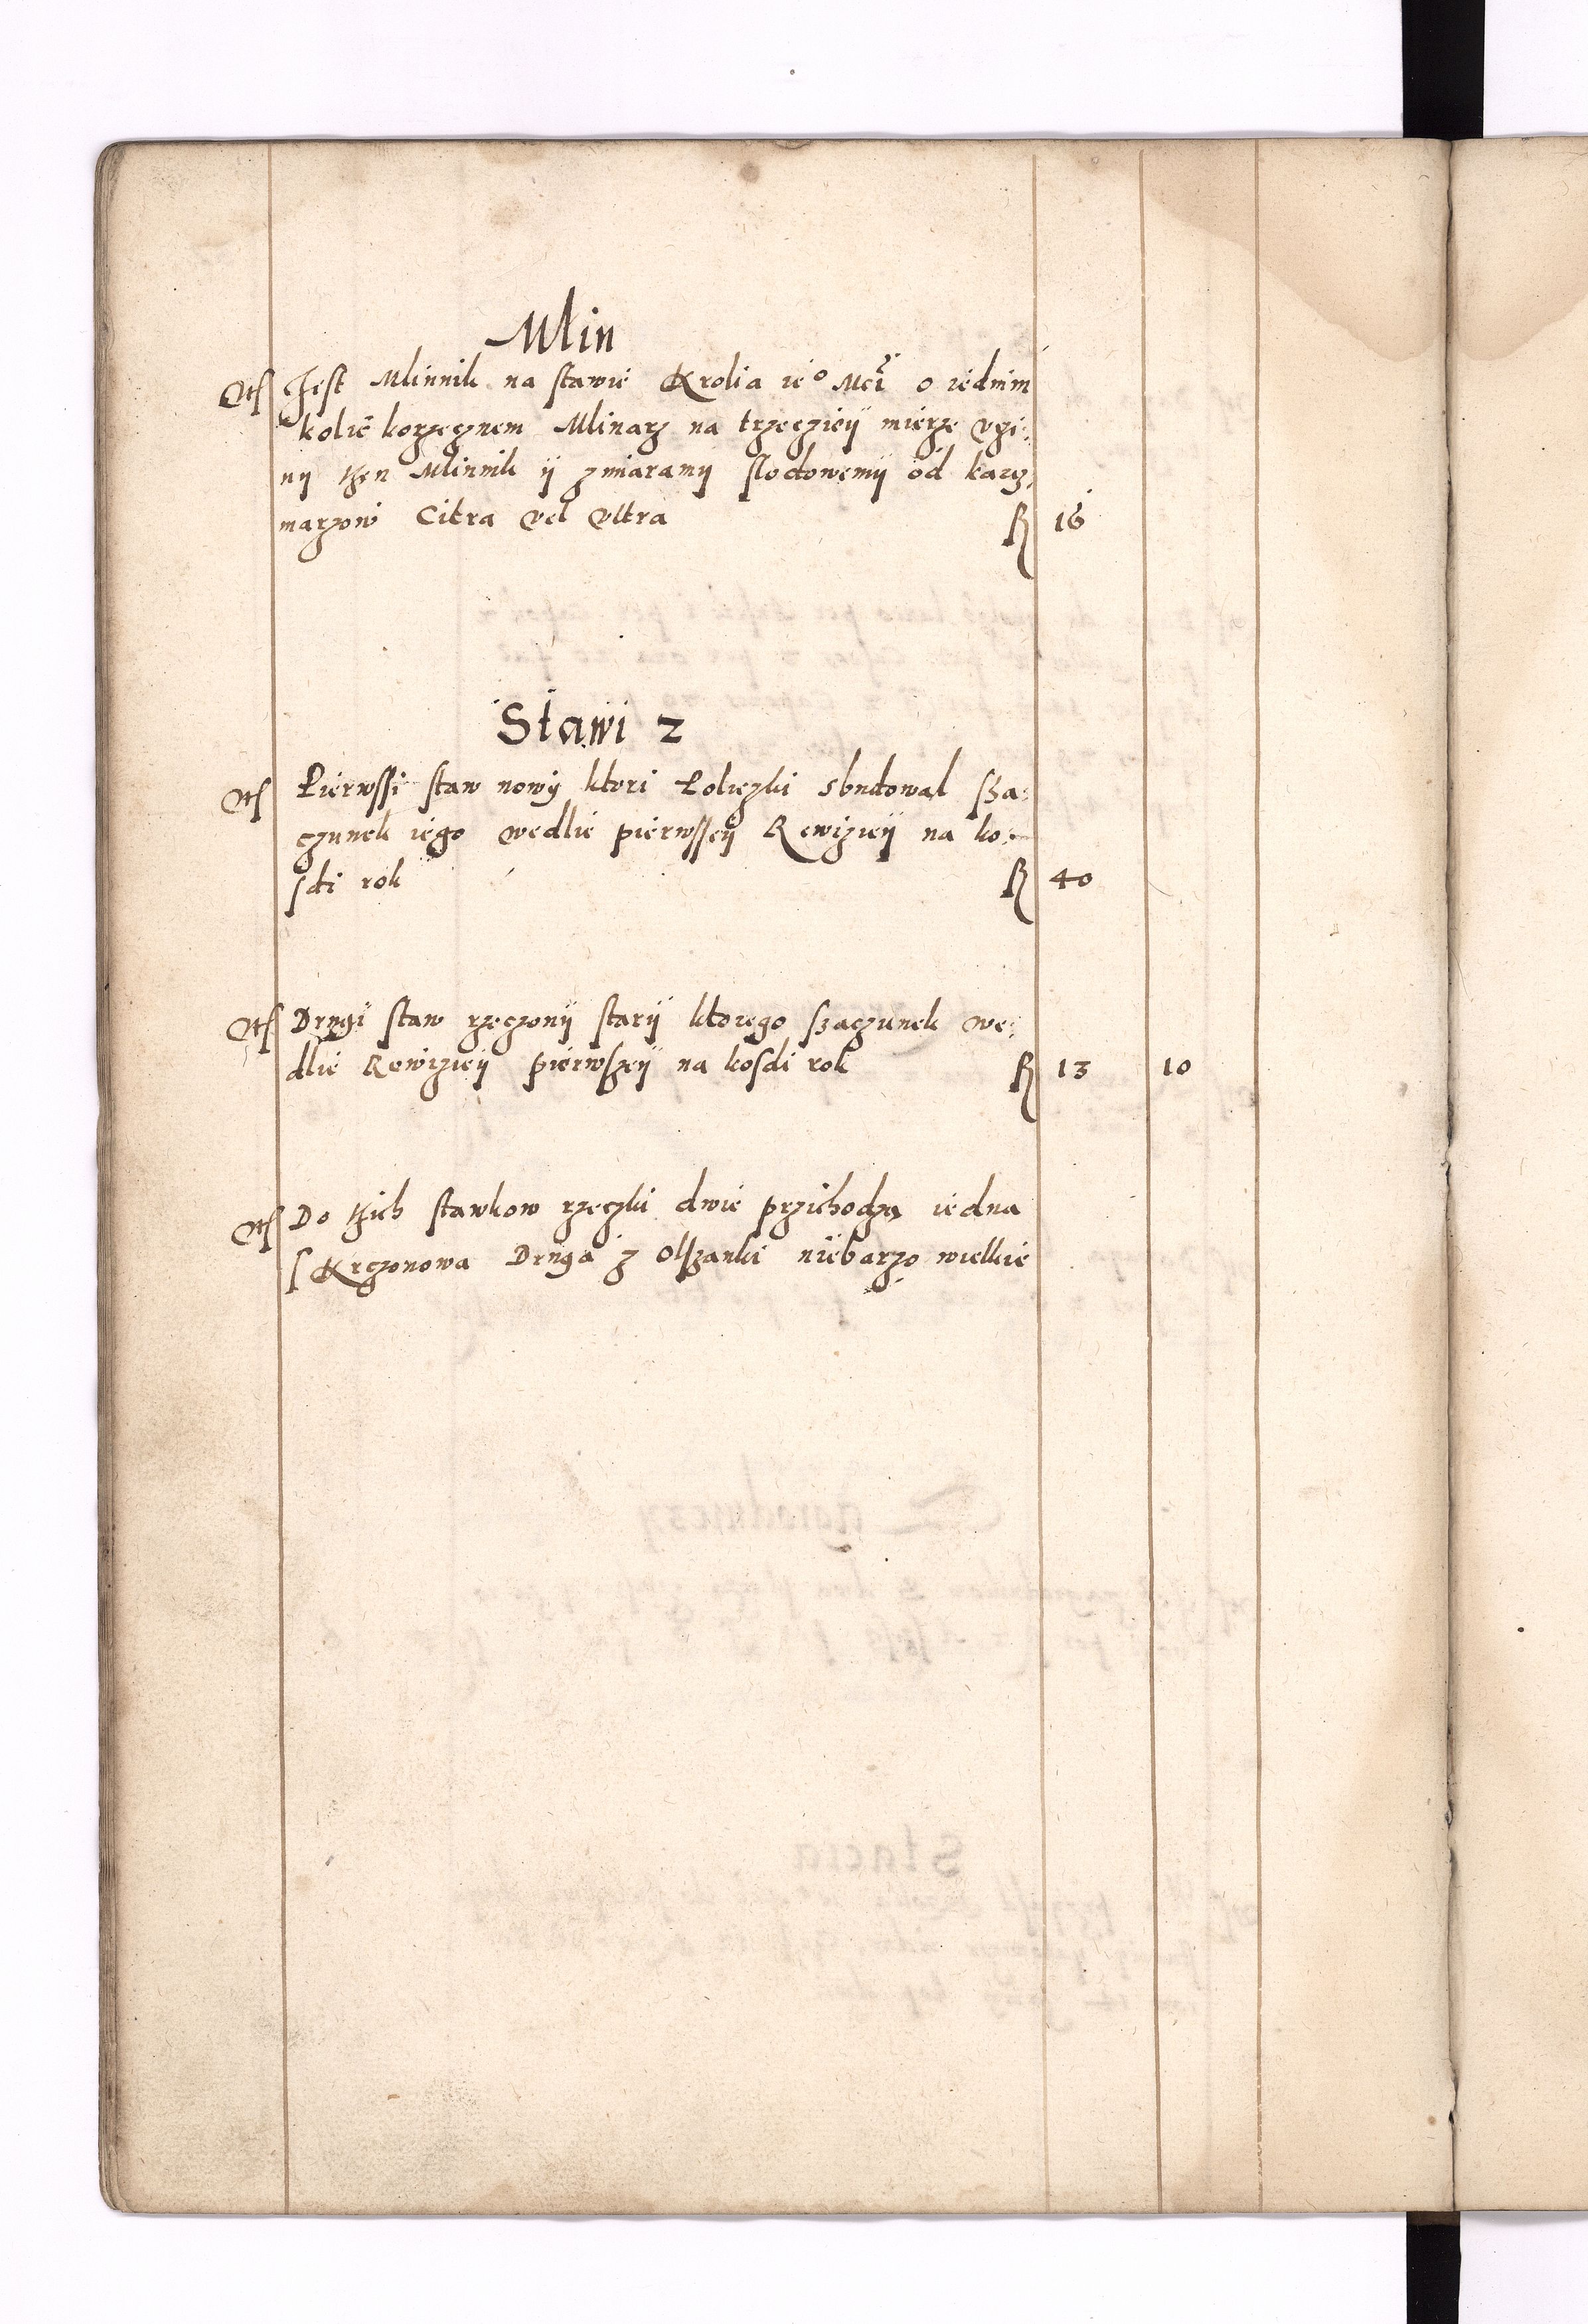 Mlin
Jest Mlinnik na stawie Krolia ieº Mći o iednim
kolie korzecznem Mlinarz na trzecziey mierze vczi:
ny then Mlinnik y zmiaramy slodowemy od karcz,
marzowi Citra vel vltra ß 16
Stawi 2
Pierwssi staw nowy ktori Policzki sbudowal sza:
czunek iego wedlie pierwssey Rewiziey na ko:
sdi rok ß 40
Drugi staw rzeczony stary ktorego szaczunek we:
dlie Rewiziey pierwszey na kosdi rok ß 13 10
Do thich stawkow rzeczki dwie przichodzą iedna
s Krczonowa Druga z Olszanki niebarzo wielkie